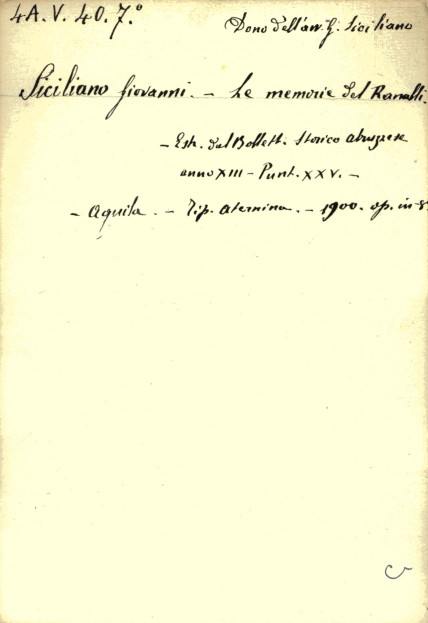 4A.V.40.7.°
Dono dell'avv. G. Siciliano
Siciliano Giovanni. - Le memorie del Ranalli.
- Estr. dal Bollett. Storico abruzzese
anno XIII - Punt. XXV. -
- Aquila. - Tip. Aternina. - 1900. op. in-8